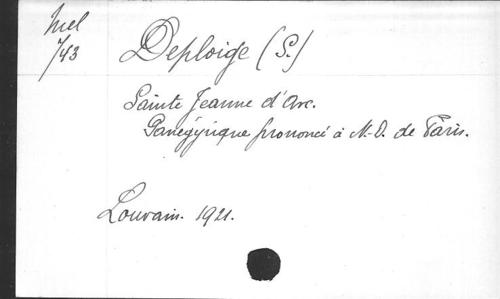 Mel
743
Deploige (S.)
Sainte Jeanne d'Arc.
Panégyrique prononcé à N.-D. de Paris.
Louvain. 1921.